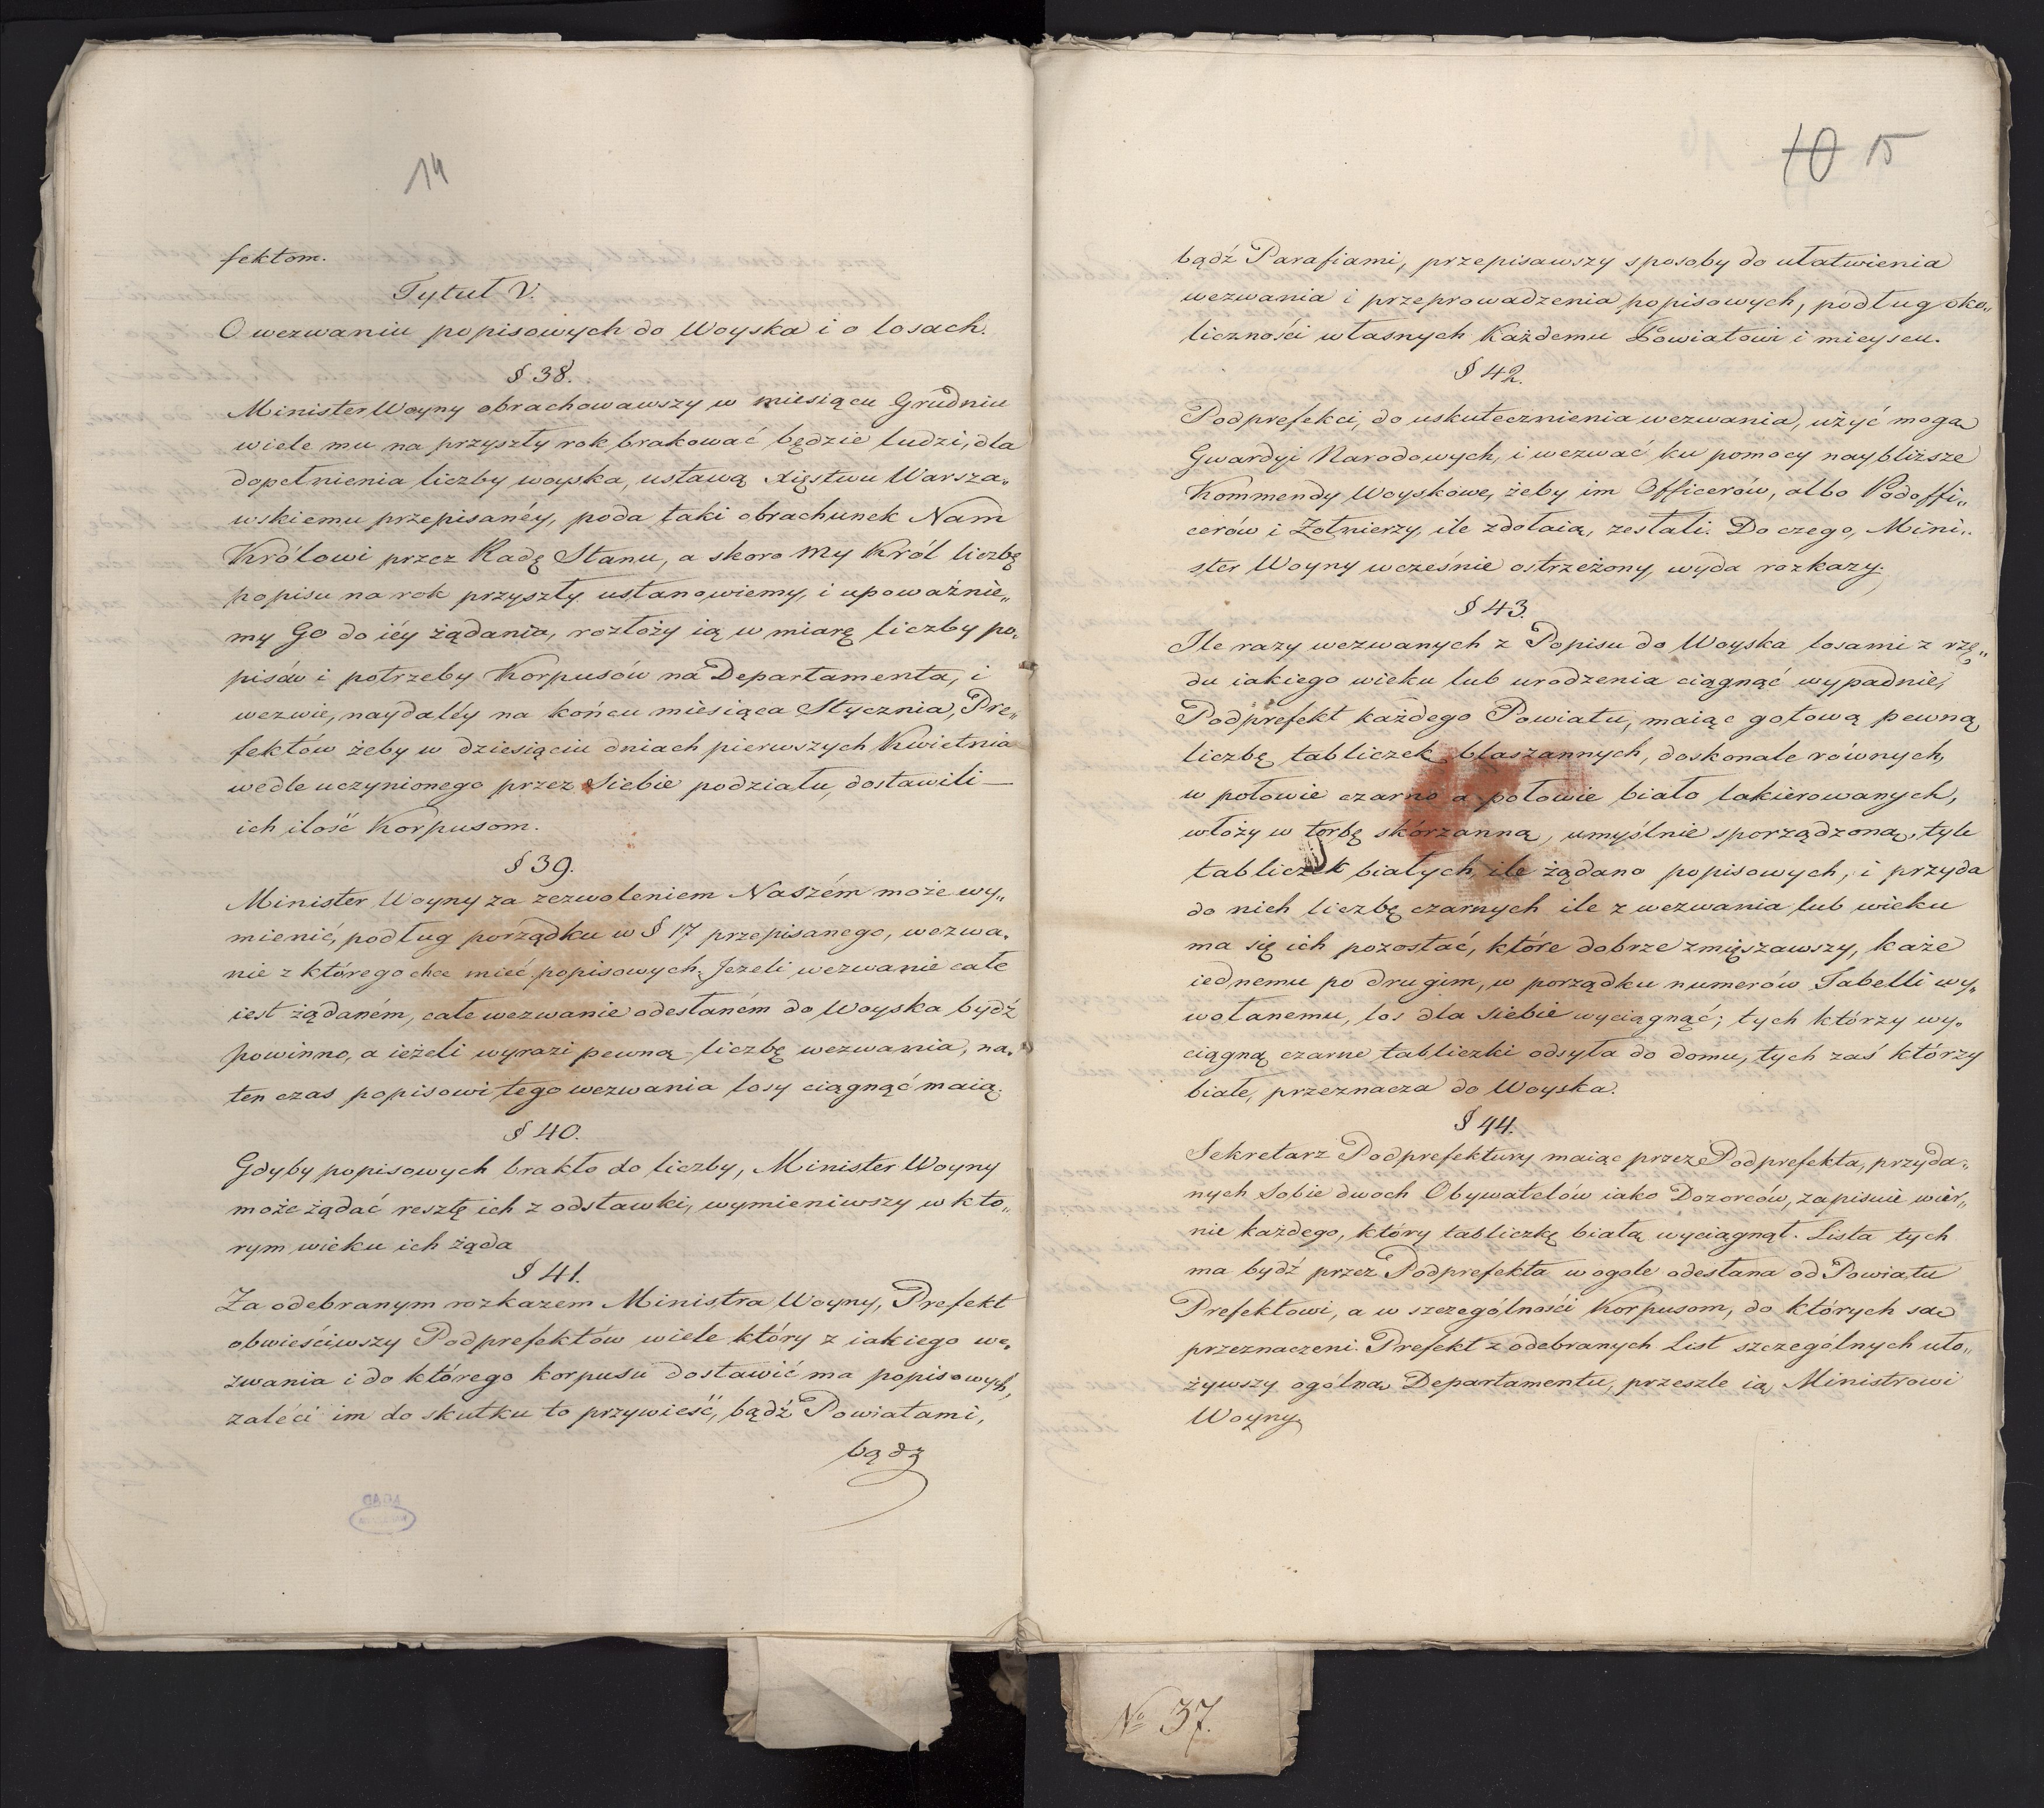 14
fektom.
Tytuł V.
O wezwaniu popisowych do Woyska i o losach.
§ 38.
Minister Woyny obrachowawszy w miesiącu Grudniu
wiele mu na przyszły rok brakować będzie ludzi, dla
dopełnienia liczby woyska, ustawą Xięstwu Warsza„
wskiemu przepisanéy, poda taki obrachunek Nam
Królowi przez Radę Stanu, a skoro My Król liczbę
popisu na rok przyszły ustanowiemy, i upoważnie„
my Go do iéy żądania, rozłoży ią w miarę liczby po„
pisów i potrzeby Korpusów na Departamenta, i
wezwie, naydaléy na końcu miesiąca Stycznia, Pre„
fektów żeby w dziesiąciu dniach pierwszych Kwietnia
wedle uczynionego przez Siebie podziału, dostawili —
ich ilość Korpusom.
§ 39.
Minister Woyny za zezwoleniem Naszém może wy„
mienić, podług porządku w § 17 przepisanego, wezwa„
nie z którego chce mieć popisowych; Jeżeli wezwanie całe
iest żądaném, całe wezwanie odesłaném do Woyska bydź
powinno, a ieżeli wyrazi pewną liczbę wezwania, na„
ten czas popisowi tego wezwania losy ciągnąć maią.
§ 40.
Gdyby popisowych brakło do liczby, Minister Woyny
może żądać resztę ich z odstawki, wymieniwszy w któ„
rym wieku ich żąda
§ 41.
Za odebranym rozkazem Ministra Woyny, Prefekt
obwieściwszy Podprefektów wiele który z iakiego we„
zwania i do którego korpusu dostawić ma popisowych,
zaléci im do skutku to przywieść, bądź Powiatami,
bądź
AGAD
10 15
bądź Parafiami, przepisawszy sposoby do ułatwienia
wezwania i przeprowadzenia popisowych, podług oko„
liczności własnych Każdemu Powiatowi i mieyscu.
§ 42.
Podprefekci, do uskutecznienia wezwania, użyć mogą
Gwardyi Narodowych, i wezwać ku pomocy naybliższe
Kommendy Woyskowe, żeby im Officerów, albo Podoffi„
cerów i Żołnierzy, ile zdołaią, zesłali. Do czego, Mini„
ster Woyny wcześnie ostrzeżony, wyda rozkazy.
§ 43.
Ile razy wezwanych z Popisu do Woyska losami z rzę„
du iakiego wieku lub urodzenia ciągnąć wypadnie,
Podprefekt każdego Powiatu, maiąc gotową pewną
liczbę tabliczek blaszannych, doskonale równych,
w połowie czarno a połowie biało lakierowanych,
włoży w torbę skórzanną, umyślnie sporządzoną, tyle
tabliczek białych, ile żądano popisowych, i przyda
do nich liczbę czarnych ile z wezwania lub wieku
ma się ich pozostać, które dobrze zmięszawszy, każe
iednemu po drugim, w porządku numerów Tabelli wy„
wołanemu, los dla siebie wyciągnąć; tych którzy wy„
ciągną czarne tabliczki odsyła do domu, tych zaś którzy
białe, przeznacza do Woyska.
§ 44.
Sekretarz Podprefektury maiąc przez Podprefekta, przyda„
nych Sobie dwoch Obywatelów iako Dozorców, zapisuie wier„
nie każdego, który tabliczkę białą wyciągnął. Lista tych
ma bydź przez Podprefekta w ogole odesłana od Powiatu
Prefektowi, a w szczególności Korpusom, do których są
przeznaczeni. Prefekt z odebranych List szczególnych uło„
żywszy ogólną Departamentu, przeszle ią Ministrowi
Woyny
No 37.